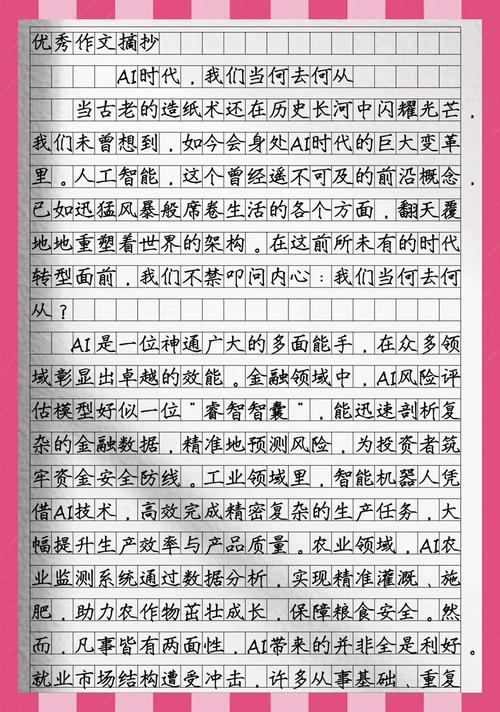 优秀作文摘抄
AI时代，我们当何去何从
当古老的造纸术还在历史长河中闪耀光芒，
我们未曾想到，如今会身处AI时代的巨大变革
里。人工智能，这个曾经遥不可及的前沿概念，
已如迅猛风暴般席卷生活的各个方面，翻天覆
地地重塑着世界的架构。在这前所未有的时代
转型面前，我们不禁叩问内心：我们当何去何
从？
AI是一位神通广大的多面能手，在众多领
域彰显出卓越的效能。金融领域中，AI风险评
估模型好似一位“睿智智囊”，能迅速剖析复
杂的金融数据，精准地预测风险，为投资者筑
牢资金安全防线。工业领域里，智能机器人凭
借AI技术，高效完成精密复杂的生产任务，大
幅提升生产效率与产品质量。农业领域，AI农
业监测系统通过数据分析，实现精准灌溉、施
肥，助力农作物茁壮成长，保障粮食安全。然
而，凡事皆有两面性，AI带来的并非全是利好。
就业市场结构遭受冲击，许多从事基础、重复